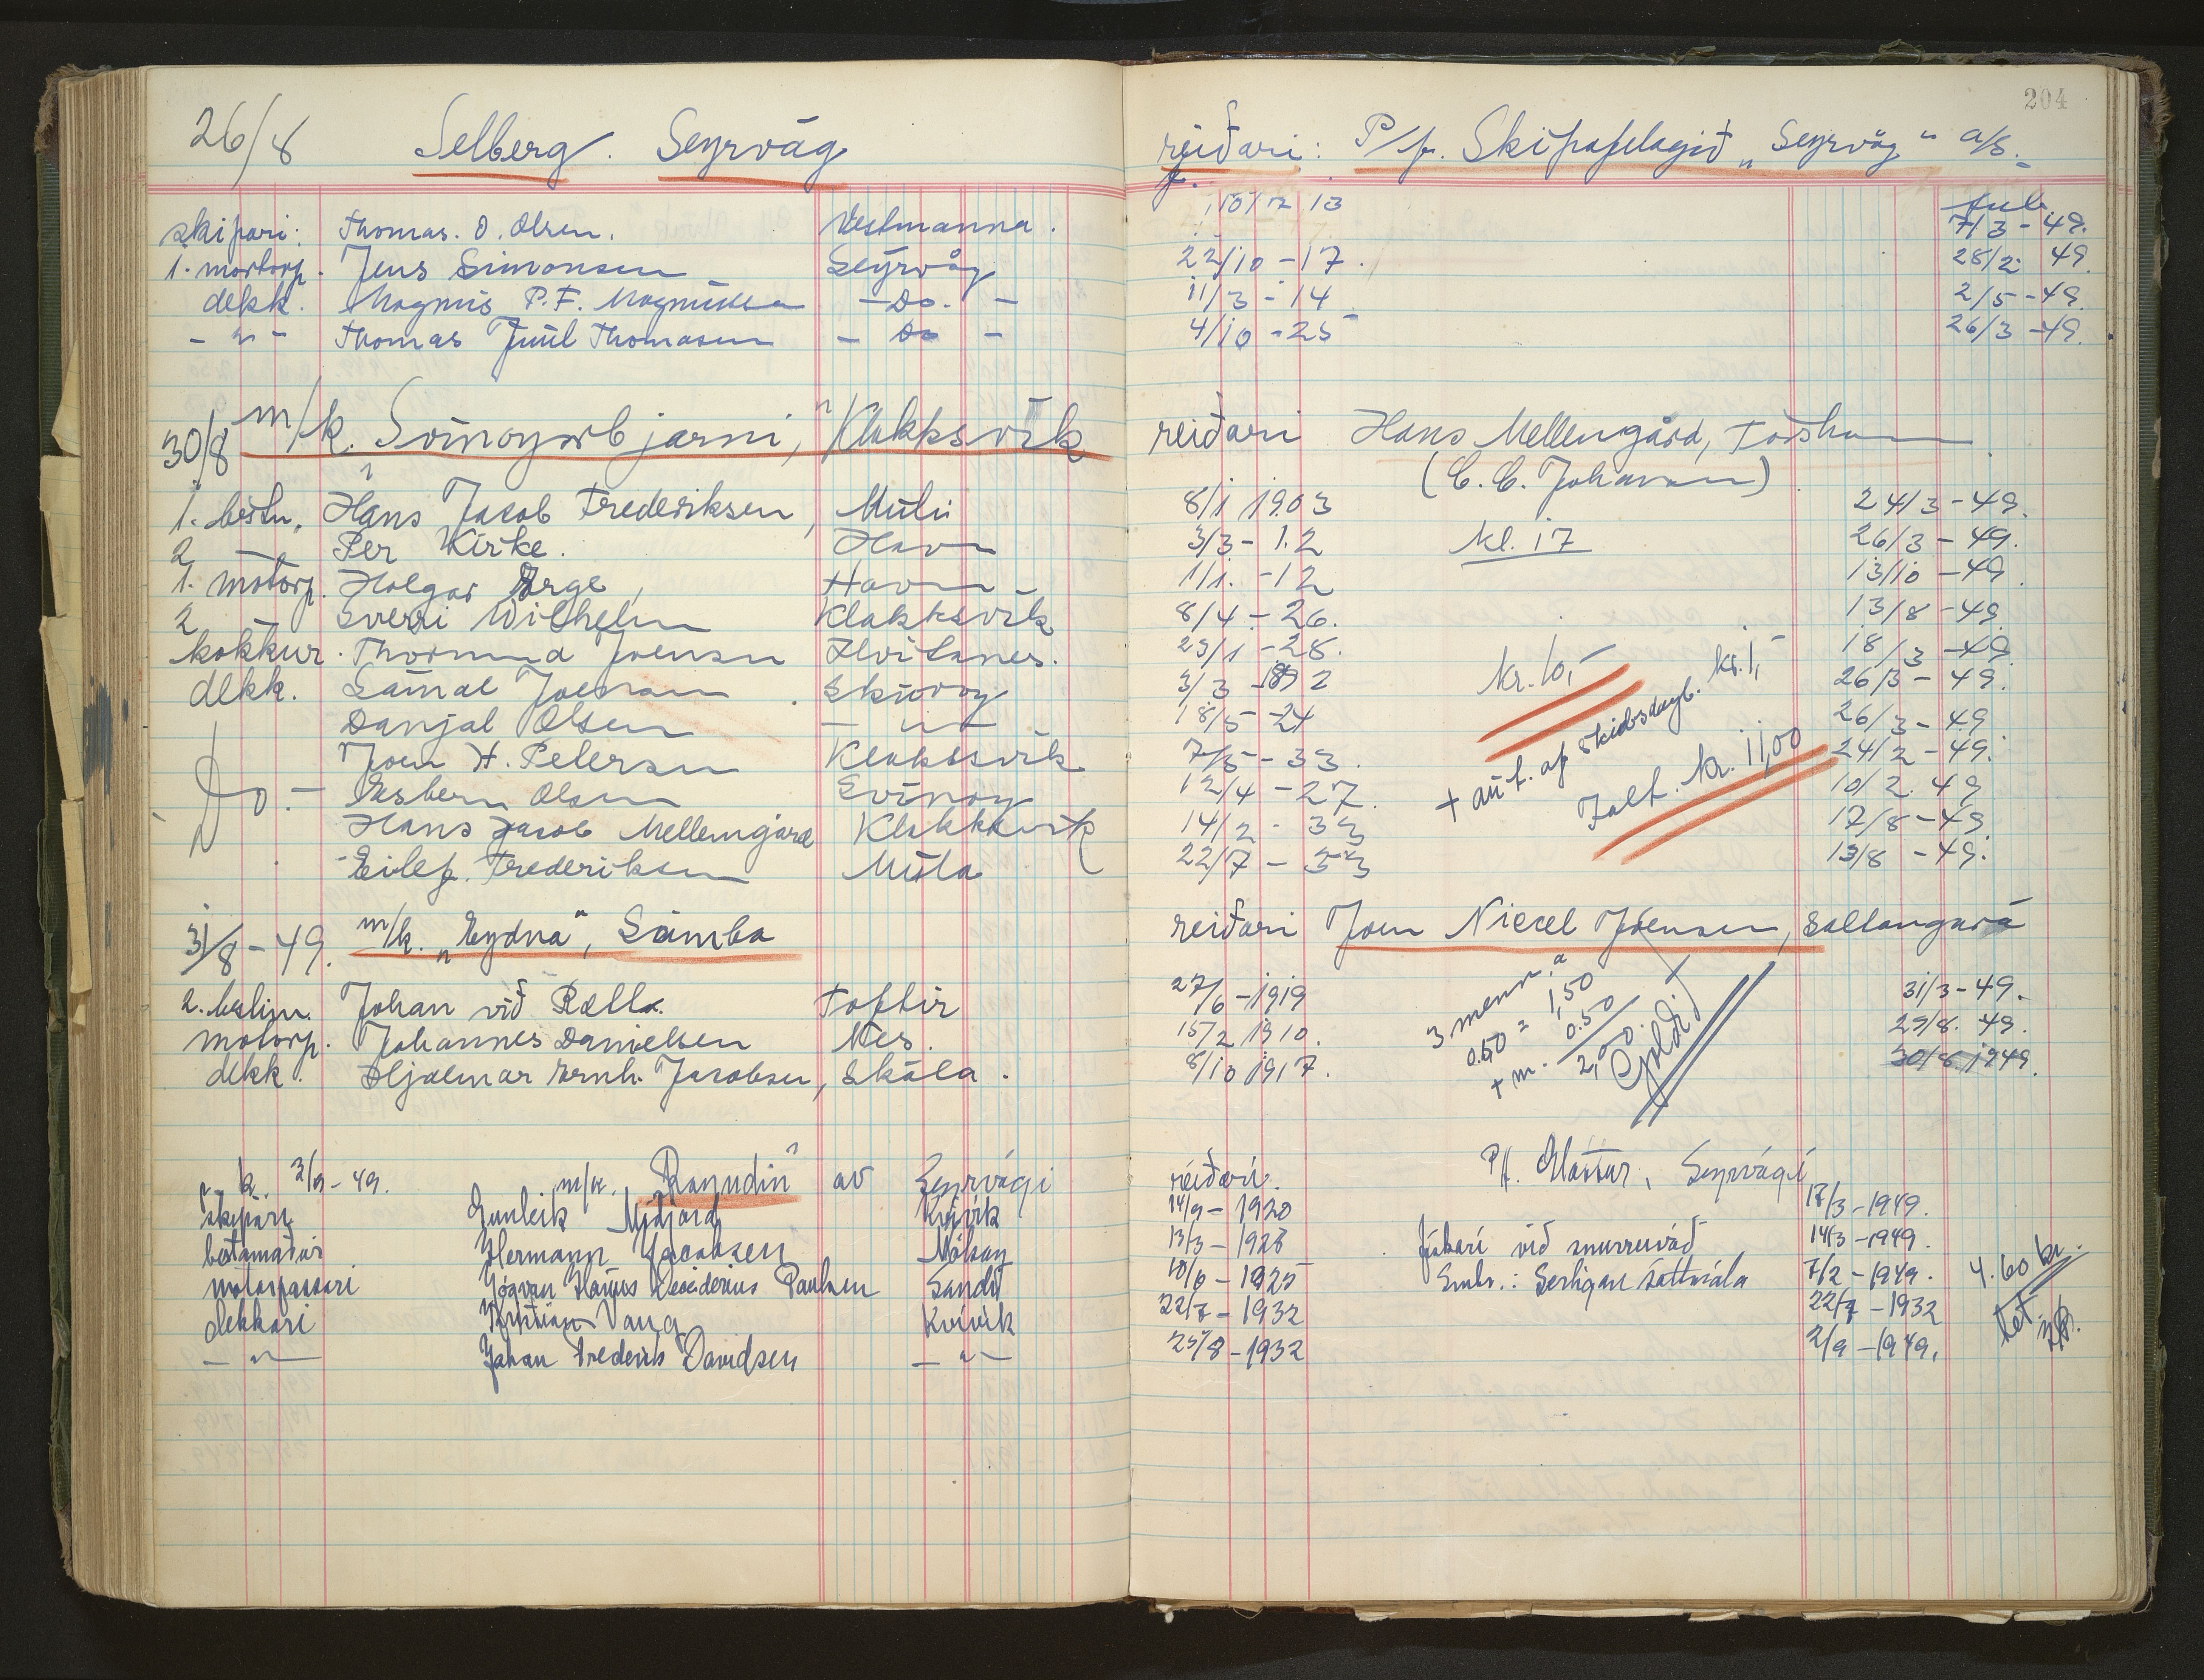 204
26/8 Selberg. Seyrvág reiðari: P/f. Skipafelagið „Seyrvág“ a/s.
skipari: Thomas. O. Olsen. Vestmanna. 13 7/3-49.
1. motorp. Jens Simonsen Seyrvág 22/10-17. 28/2 49.
dekk. Magnus P.F. Magnussen -Do.- 11/3-14 2/5-49.
-"- Thomas Juul Thomasen -Do- 4/10-25 26/3-49.
30/8 m/k. Svinoyarbjarni, Klakksvík reiðari Hans Mellemgárd, Torshavn
(C.C. Johansen)
1. bestm. Hans Jacob Frederiksen, Múli 8/1 1903 24/3-49.
2 Per Kirke. Havn 3/3-12 kl. 17 26/3-49.
1. motorp. Holgar Arge, Havn 1/1.-12 13/10-49.
2 Sverri Wilhelm Klakksvík 8/4-26. 13/8-49.
kokkur. Thormund Joensen Hvitanes. 23/1-28. kr. 10,- 18/3-49
dekk. Sámal Joensen. Skúvoy 3/3-1892 26/3-49.
Danjal Olsen -"- 18/5-24 + aut. af skibsdagb. kr. 1,- 26/3-49.
Joen H. Petersen Klakksvík 7/5-33. Ialt. kr. 11,00 24/2-49.
Do.- Esbern Olsen Svínoy 12/4-27. 10/2.49
Hans Jacob Mellemgárd Klakksvík 14/2-33 17/8-49.
Eilef. Frederiksen Múla 22/7-33 13/8-49.
31/8-49. m/k. „Eydna“, Sumba reiðari Joen Niccel Joensen, Saltangará
2. bestm. Johan við Rætt. Toftir 27/6-1919 3 menn a 31/3-49.
motorp. Johannes Danielsen Nes. 15/2 1910. 0.50 = 1,50 29/8.49.
dekk. Hjalmar Ernh. Jacobsen, Skála. 8/10 1917. + m. 0.50 30/8 1949.
2,00 Goldið
2/9-49. m/k. „Rogudin“ av Seyrvági reiðari. P/f. Mattur, Seyrvági
skipari Gunleik Midjord Kvívík 14/9-1920 17/3-1949.
bestamaður Hermann Jacobsen Mikson 13/3-1928 Fiskarí við snurruváð 14/3-1949.
motorpassari Jógvan Hanus Desiderius Paulsen Sandi 10/6-1925 Embr.: Serligan sáttmála 7/2-1949. 4.60 kr.
dekkari Kristian Vang Kvívík 22/7-1932 22/7-1932
-"- Johan Frederik Davidsen -"- 25/8-1932 2/9-1949.